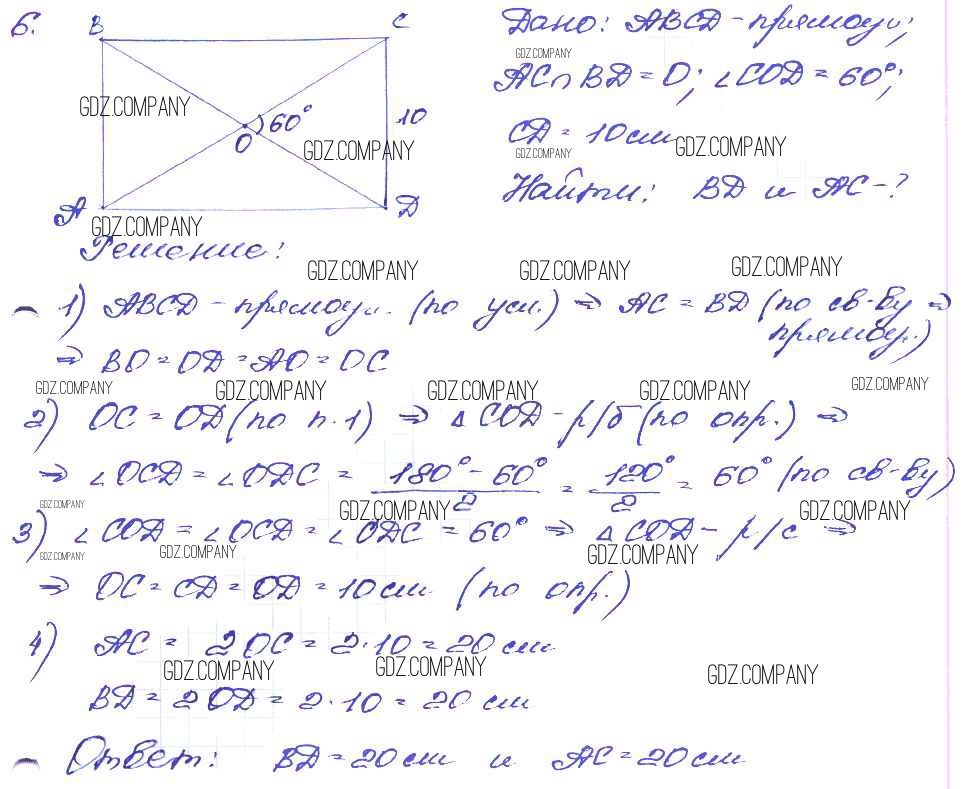 6.
B C
Дано: ABCD - прямоуг.;
AC∩BD = O; ∠COD = 60°;
CD = 10 см
Найти: BD и AC - ?
60°
10
O
A D
GDZ.COMPANY
GDZ.COMPANY
GDZ.COMPANY
GDZ.COMPANY
GDZ.COMPANY
GDZ.COMPANY
Решение:
GDZ.COMPANY GDZ.COMPANY GDZ.COMPANY
1) ABCD - прямоуг. (по усл.) ⇒ AC = BD (по св-ву ⇒
прямоуг.)
⇒ BO = OD = AO = OC
GDZ.COMPANY GDZ.COMPANY GDZ.COMPANY GDZ.COMPANY GDZ.COMPANY
2) OC = OD (по п.1) ⇒ △COD - р/б (по опр.) ⇒
⇒ ∠OCD = ∠ODC = (180° - 60°)/2 = 120°/2 = 60° (по св-ву)
GDZ.COMPANY GDZ.COMPANY GDZ.COMPANY
3) ∠COD = ∠OCD = ∠ODC = 60° ⇒ △COD - р/с ⇒
GDZ.COMPANY GDZ.COMPANY GDZ.COMPANY
⇒ OC = CD = OD = 10 см (по опр.)
4) AC = 2OC = 2·10 = 20 см
GDZ.COMPANY GDZ.COMPANY GDZ.COMPANY
BD = 2OD = 2·10 = 20 см
Ответ: BD = 20 см и AC = 20 см